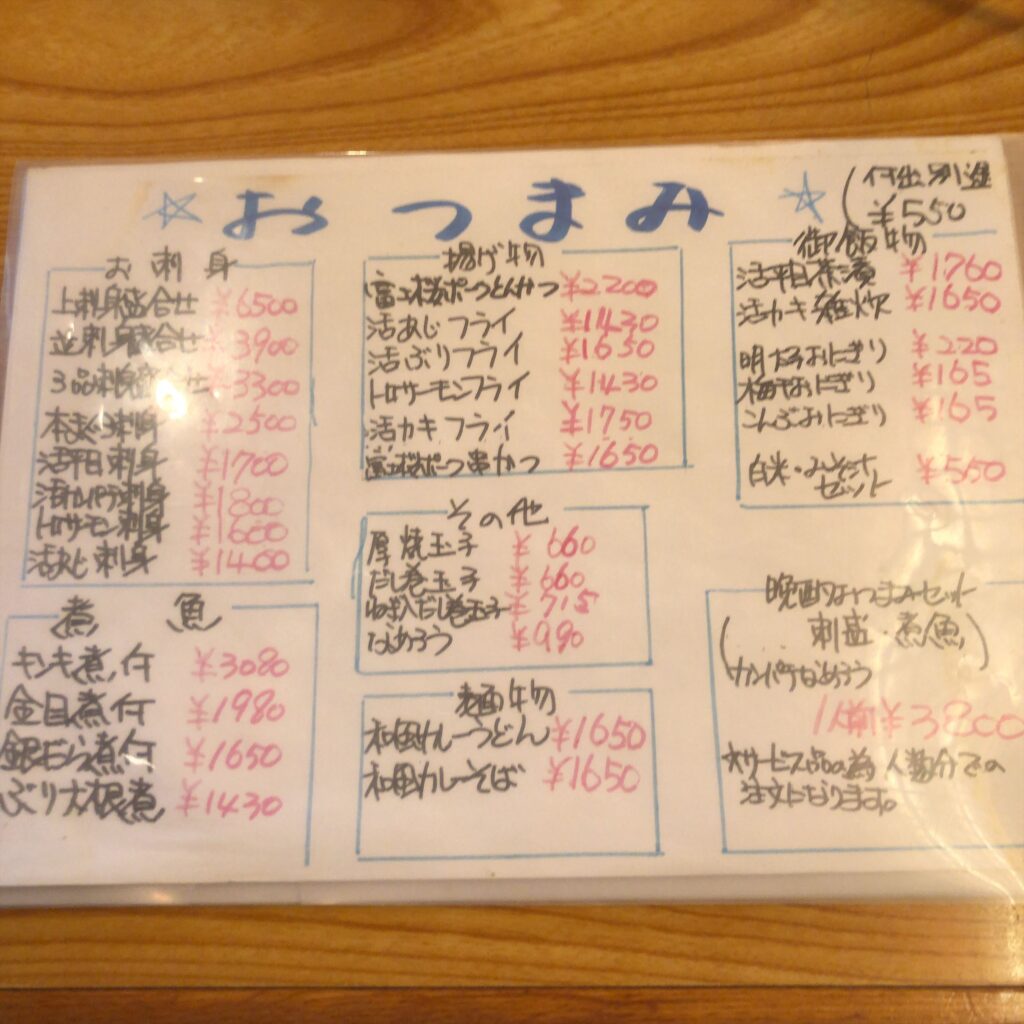 ☆ おつまみ ☆
(付出別途
¥550
お刺身
上刺身盛合せ ¥6500
並刺身盛合せ ¥3900
3品刺身盛合せ ¥3300
本まぐろ刺身 ¥2500
活平目刺身 ¥1700
活カンパチ刺身 ¥1800
トロサーモン刺身 ¥1600
活あじ刺身 ¥1400
煮魚
キンキ煮付 ¥3080
金目煮付 ¥1980
銀だら煮付 ¥1650
ぶり大根煮 ¥1430
揚げ物
富士桜ポークとんかつ ¥2200
活あじフライ ¥1430
活ぶりフライ ¥1650
トロサーモンフライ ¥1430
活カキフライ ¥1750
富士桜ポーク串かつ ¥1650
その他
厚焼玉子 ¥660
だし巻玉子 ¥660
ねぎ入だし巻玉子 ¥715
なめろう ¥990
麺物
和風カレーうどん ¥1650
和風カレーそば ¥1650
御飯物
活平目茶漬 ¥1760
活カキ雑炊 ¥1650
明太おにぎり ¥220
梅干おにぎり ¥165
こんぶおにぎり ¥165
白米・みそ汁
セット ¥550
晩酌おつまみセット
(刺盛・煮魚)
カンパチなめろう
1人前¥3800
サービス品の為人数分での
注文になります。